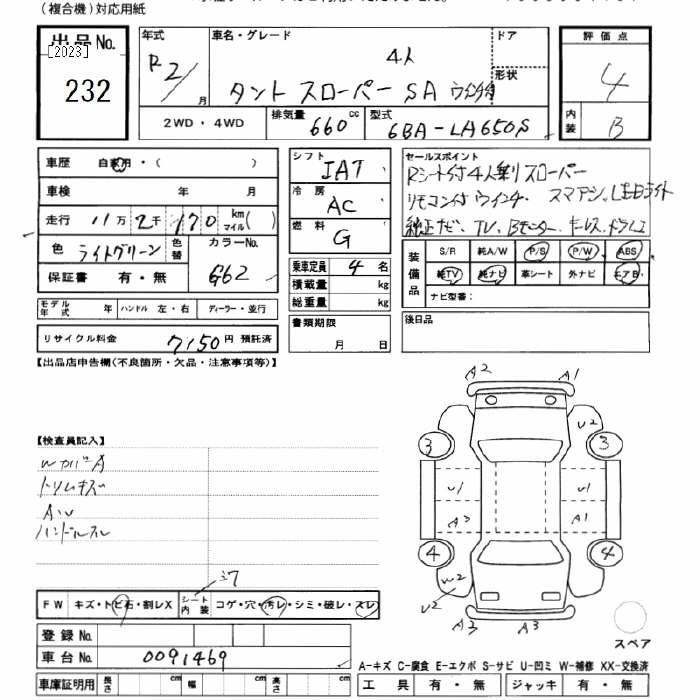 (複合機)対応用紙
出品No.
[2023]
232
年式 車名・グレード ドア 評価点
R2/ 月 4人 形状 4
タント スローパー SA ウインチ付
2WD・4WD 排気量 660 cc 型式 6BA-LA650S 内装 B
車歴 自家用・( )
車検 年 月
走行 11万2千170 km マイル( )
色 ライトグリーン 色替 カラーNo. G62
保証書 有・無
モデル年式 年 ハンドル 左・右 ディーラー・並行
リサイクル料金 7150円 預託済
シフト IAT
冷房 AC
燃料 G
乗車定員 4 名
積載量 kg
総重量 kg
書類期限
月 日
セールスポイント
Rシート付4人乗りスローパー
リモコン付ウインチ・スマアシ、LEDライト
純正ナビ、TV、Bモニター、キーレス、ドラレコ
装備品 S/R 純A/W P/S P/W ABS
純TV 純ナビ 革シート 外ナビ エアB
ナビ型番:
後日品
【出品店申告欄(不良箇所・欠品・注意事項等)】
【検査員記入】
WカバーA
トリムキズ
AW
ハンドルスレ
FW キズ・トビ石・割レX シート内装 コゲ・穴・汚レ・シミ・破レ・スレ
登録No.
車台No. 0091469
車庫証明用 長さ cm 幅 cm 高さ cm
A2 A1
U2
3 3
U1 U1
A3 A1
4 4
W2
U2
A3 A3
スペア
A-キズ C-腐食 E-エクボ S-サビ U-凹ミ W-補修 XX-交換済
工具 有・無 ジャッキ 有・無